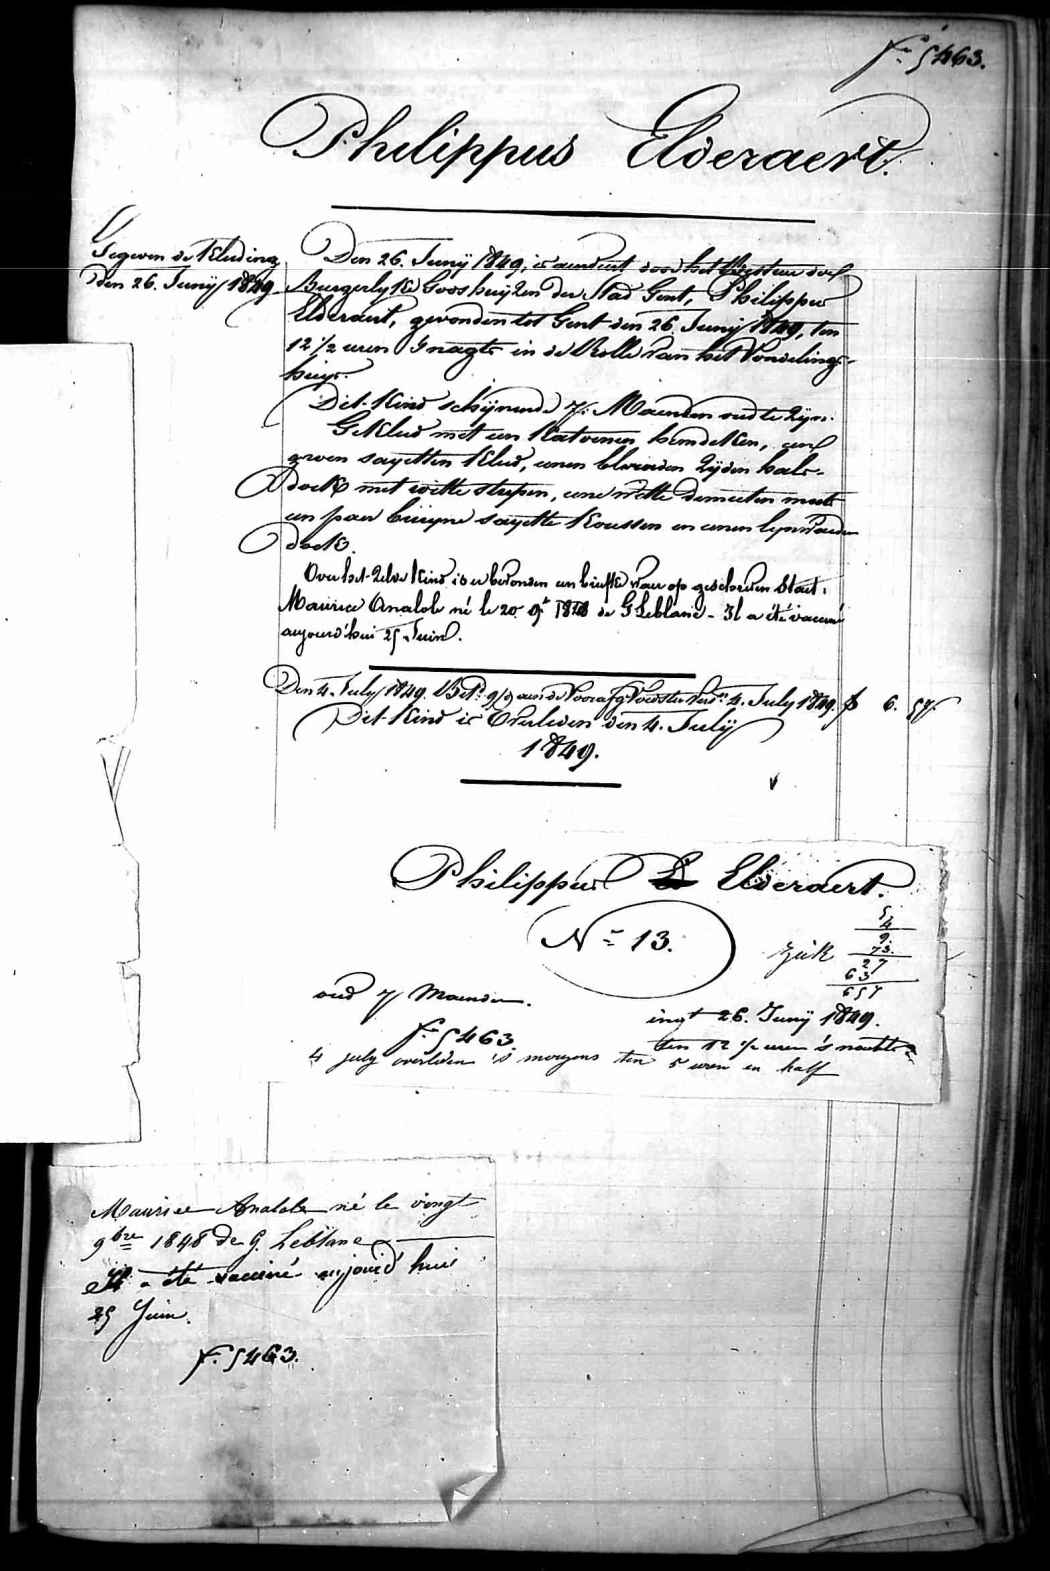 f.° 5463.
Philippus Elderaert.
Gegeven de Kleeding
den 26. Junij 1849
Den 26. Junij 1849, is aenveert door het Bestuer der
Burgerlyke Godshuyzen der Stad Gent, Philippus
Elderaert, gevonden tot Gent den 26. Junij 1849, ten
12 1/2 uren s'nagts in de Rolle van het Vondeling-
huys.
Dit Kind schijnende 7. Maenden oud te zijn.
Gekleed met een Katoenen hemdeken, een
groen sayetten Kleed, eenen blauwen zijden hals-
doek met witte strepen, eene witte demieten muts
een paer bruyne sayette Koussen en eenen lynwaeden
doek.
Over het zelve Kind is er bevonden een briefke waer op geschreven staet:
Maurice Anatole né le 20. 9.bre 1848 de G Leblanc - Il a été vacciné
aujourd'hui 25 Juin.
Den 4. July 1849. 4. July 1849. f 6. 57.
Dit Kind is Overleden den 4. Julij
1849.
Philippus Elderaert.
N.° 13.
54
9
73.
27
63
657
Ziek
oud 7 Maenden.
ingt 26. Junij 1849.
f.° 5463
ten 12 1/2 uren 's nachts
4 july overleden 's morgens ten 5 uren en half
Maurice Anatole né le vingt
9bre 1848 de G. Leblanc
Il a été vacciné aujourd'hui
25 Juin.
f.° 5463.